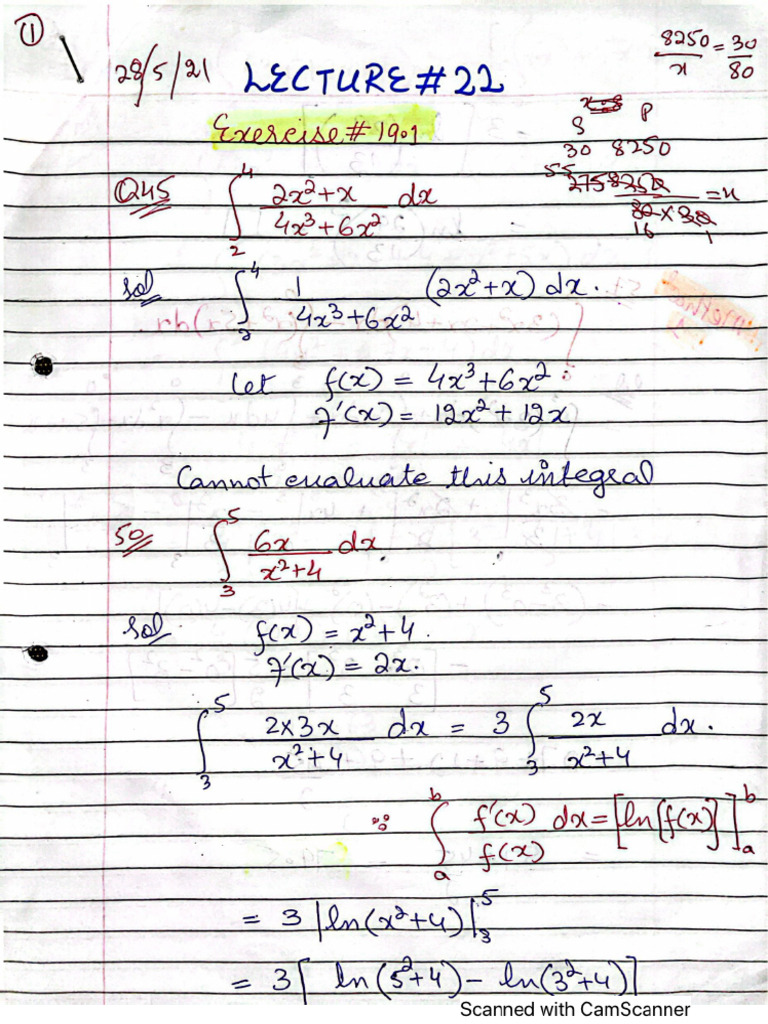 ①
28/5/21 LECTURE # 22
8250/x = 30/80
Exercise # 19.1
S P
30 8250
55
275 8250/80×30 = x
16 1
Q45 ∫₂⁴ (2x²+x)/(4x³+6x²) dx
sol ∫₂⁴ 1/(4x³+6x²) (2x²+x) dx.
Let f(x) = 4x³+6x²
f'(x) = 12x²+12x
Cannot evaluate this integral
50 ∫₃⁵ 6x/(x²+4) dx.
Sol f(x) = x²+4.
f'(x) = 2x.
∫₃⁵ (2×3x)/(x²+4) dx = 3 ∫₃⁵ 2x/(x²+4) dx.
∵ ∫ₐᵇ f'(x)/f(x) dx = [ln{f(x)}]ₐᵇ
= 3 |ln(x²+4)|₃⁵
= 3[ ln(5²+4) - ln(3²+4)]
Scanned with CamScanner